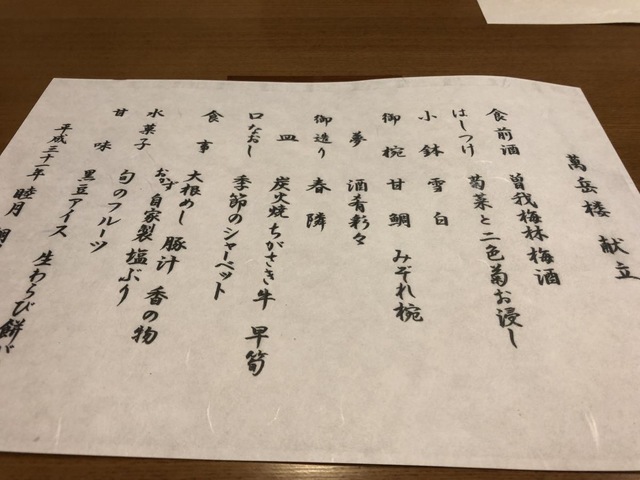 萬岳楼 献立
食前酒 曽我梅林梅酒
はしつけ 菊菜と二色菊お浸し
小鉢 雪白
御椀 甘鯛 みぞれ椀
夢 酒肴彩々
御造り 春隣
皿 炭火焼ちがさき牛 早筍
口なおし 季節のシャーベット
食事 大根めし 豚汁 香の物
おかず 自家製塩ぶり
水菓子 旬のフルーツ
甘味 黒豆アイス 生わらび餅
平成三十一年 睦月